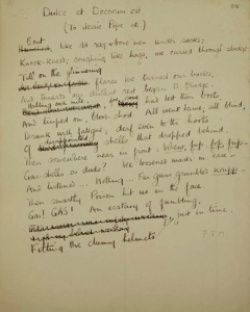 Dulce et Decorum est.
(To Jessie Pope etc.)
Bent like old rag & bone men under sacks,
Knock-kneed, coughing like hags, we cursed through sludge,
Till on the glimmering
flares we turned our backs,
And towards our distant rest began to trudge.
had lost their boots,
And limped on, blood-shod. All went lame, all blind,
Drunk with fatigue, deaf even to the hoots
Of shells that dropped behind.
Then somewhere near in front: Whew, fup, fup, fup,
Gas-shells or duds? We loosened masks in case –
And listened... Nothing... Far guns grumbled
Then smartly Poison hit us in the face.
Gas! GAS! An ecstasy of fumbling,
just in time.
Fitting the clumsy helmets